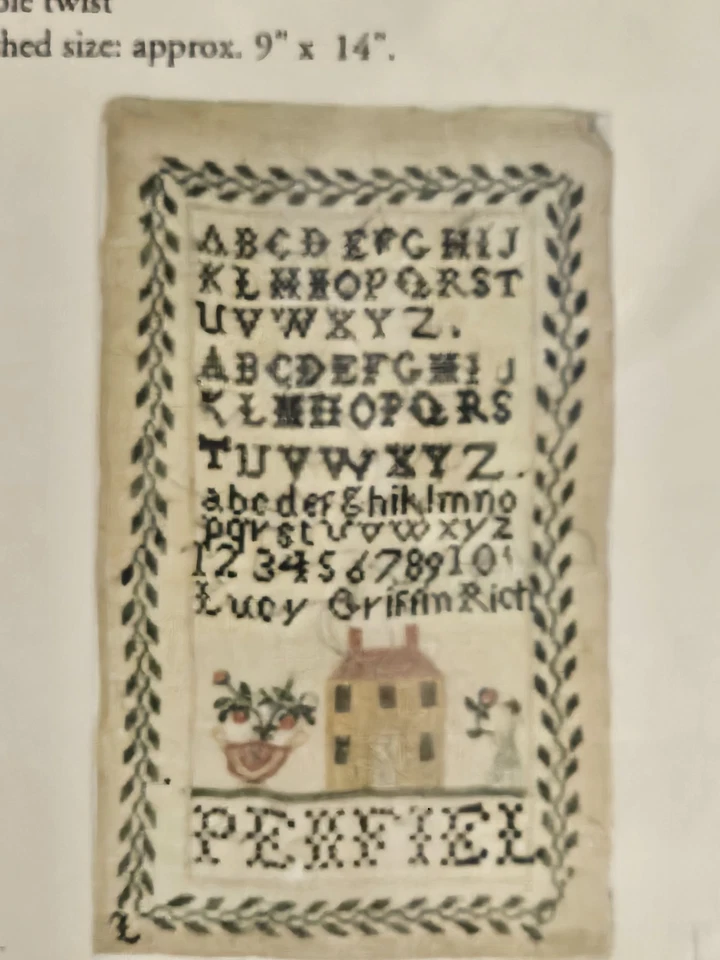 ble twist
hed size: approx. 9" x 14".
ABCD EFGHIJ
KLMNOPQRST
UVWXYZ.
ABCDEFGHIJ
KLMNOPQRS
TUVWXYZ.
abcdefghiklmno
pqrstuvwxyz
12345678910
Lucy Griffin Rich
PENFIEL
L